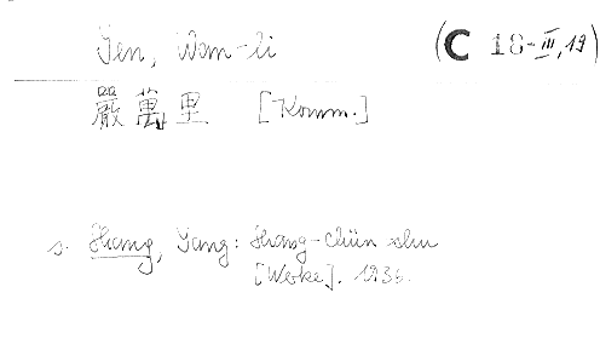 Yen, Wan-li (C 18-III,19)
嚴萬里 [Komm.]
s. Shang, Yang: Shang-chün shu
[Werke]. 1936.